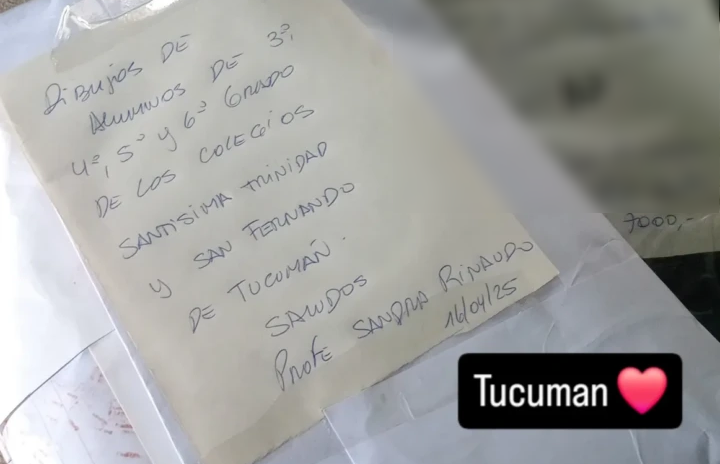 DIBUJOS DE
ALUMNOS DE 3º,
4º, 5º Y 6º GRADO
DE LOS COLEGIOS
SANTISIMA TRINIDAD
Y SAN FERNANDO
DE TUCUMÁN.
SALUDOS
PROFE SANDRA RINAUDO
16/04/25
7000,-
Tucuman ❤️